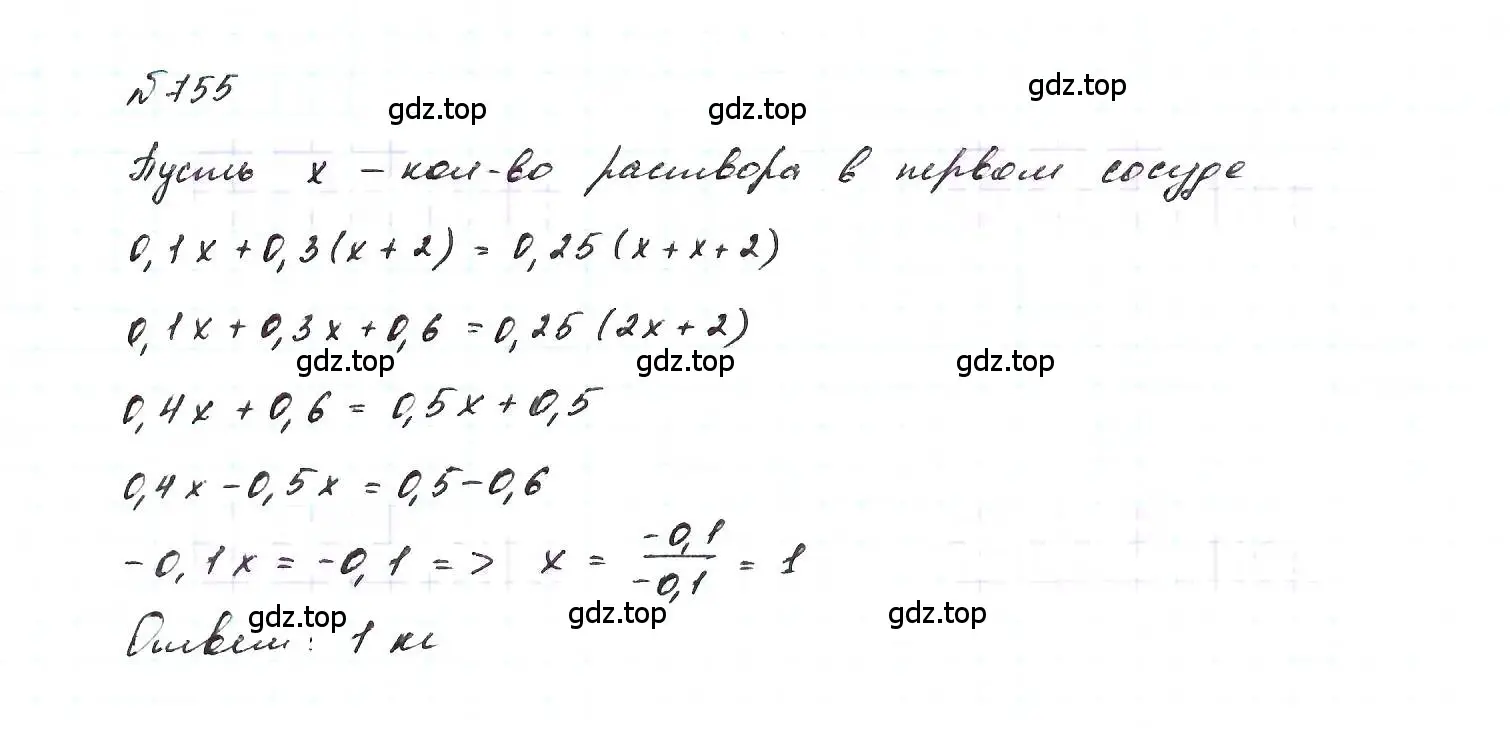 №755
gdz.top gdz.top gdz.top
Пусть x – кол-во раствора в первом сосуде
0,1x + 0,3(x + 2) = 0,25(x + x + 2)
0,1x + 0,3x + 0,6 = 0,25(2x + 2)
gdz.top gdz.top gdz.top
0,4x + 0,6 = 0,5x + 0,5
0,4x - 0,5x = 0,5 - 0,6
-0,1x = -0,1 => x = -0,1/-0,1 = 1
gdz.top gdz.top gdz.top
Ответ: 1 кг